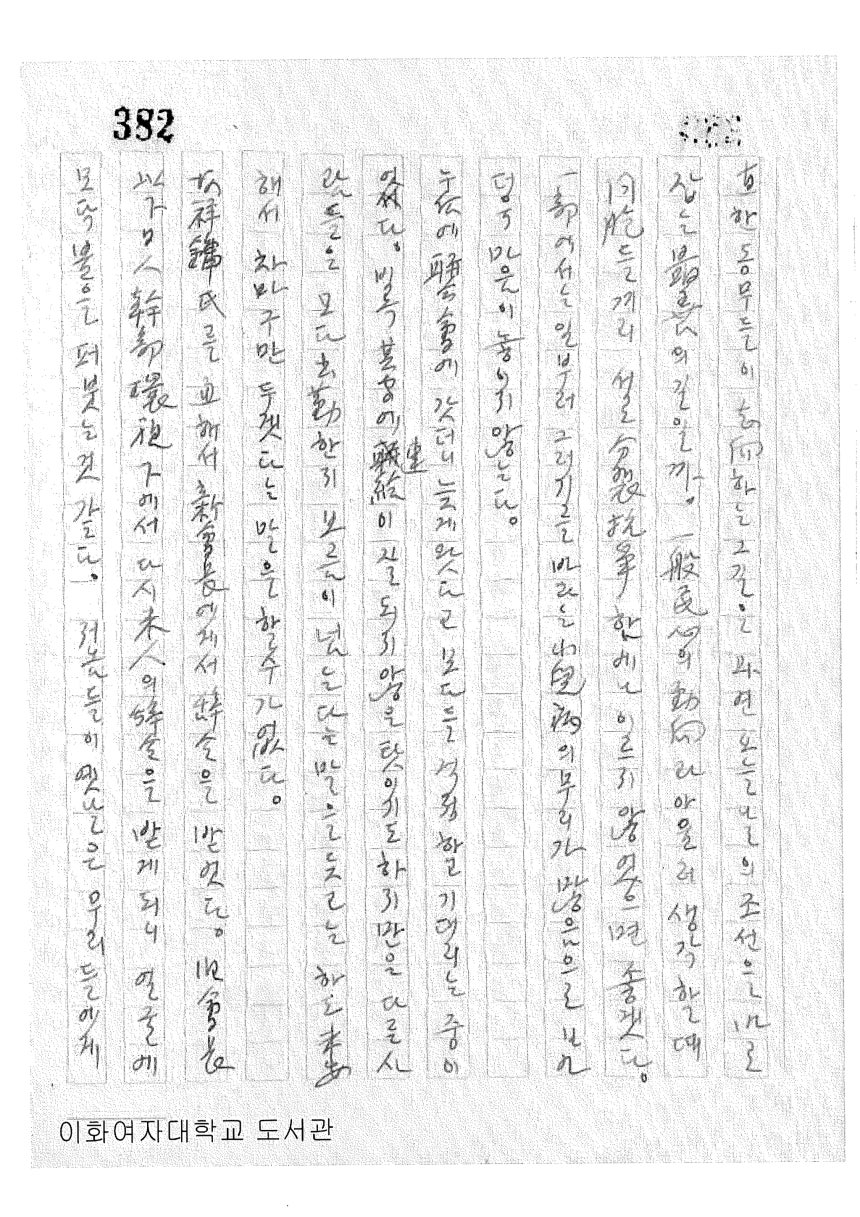 382
한 동무들이 志向하는 그 길은 과연 오늘날의 조선을 바로
잡는 最善의 길일까. 一般民心의 動向과 아울러 생각할 때
同胞들끼리 설 分裂抗爭함에나 이르지 않었으면 좋겠다.
一部에서는 일부러 그러기를 바라는 小兒病의 무리가 많음으로 보
덩구 마음이 놓이지 않는다.
누淑에 騷會에 갓더니 늦게 왓다고 모다들 걱정하고 기대리는 중이
였다. 비록 其間에 連絡이 잘 되지 않은 탓이기도 하지만은 다른 사
람들은 모다 出勤한지 보름이 넘는다는 말을 듯고는 하도 未安
해서 차마 구만두겟다는 말은 할 수가 없다.
祥鎬氏를 교해서 新會長에게서 辭令을 받엇다. 旧會長
以下 日人 幹部 環視下에서 다시 本人의 辭令을 받게 되니 얼굴에
모닥불을 퍼붓는 것 같다. 저놈들이 옛날은 우리들에게
이화여자대학교 도서관